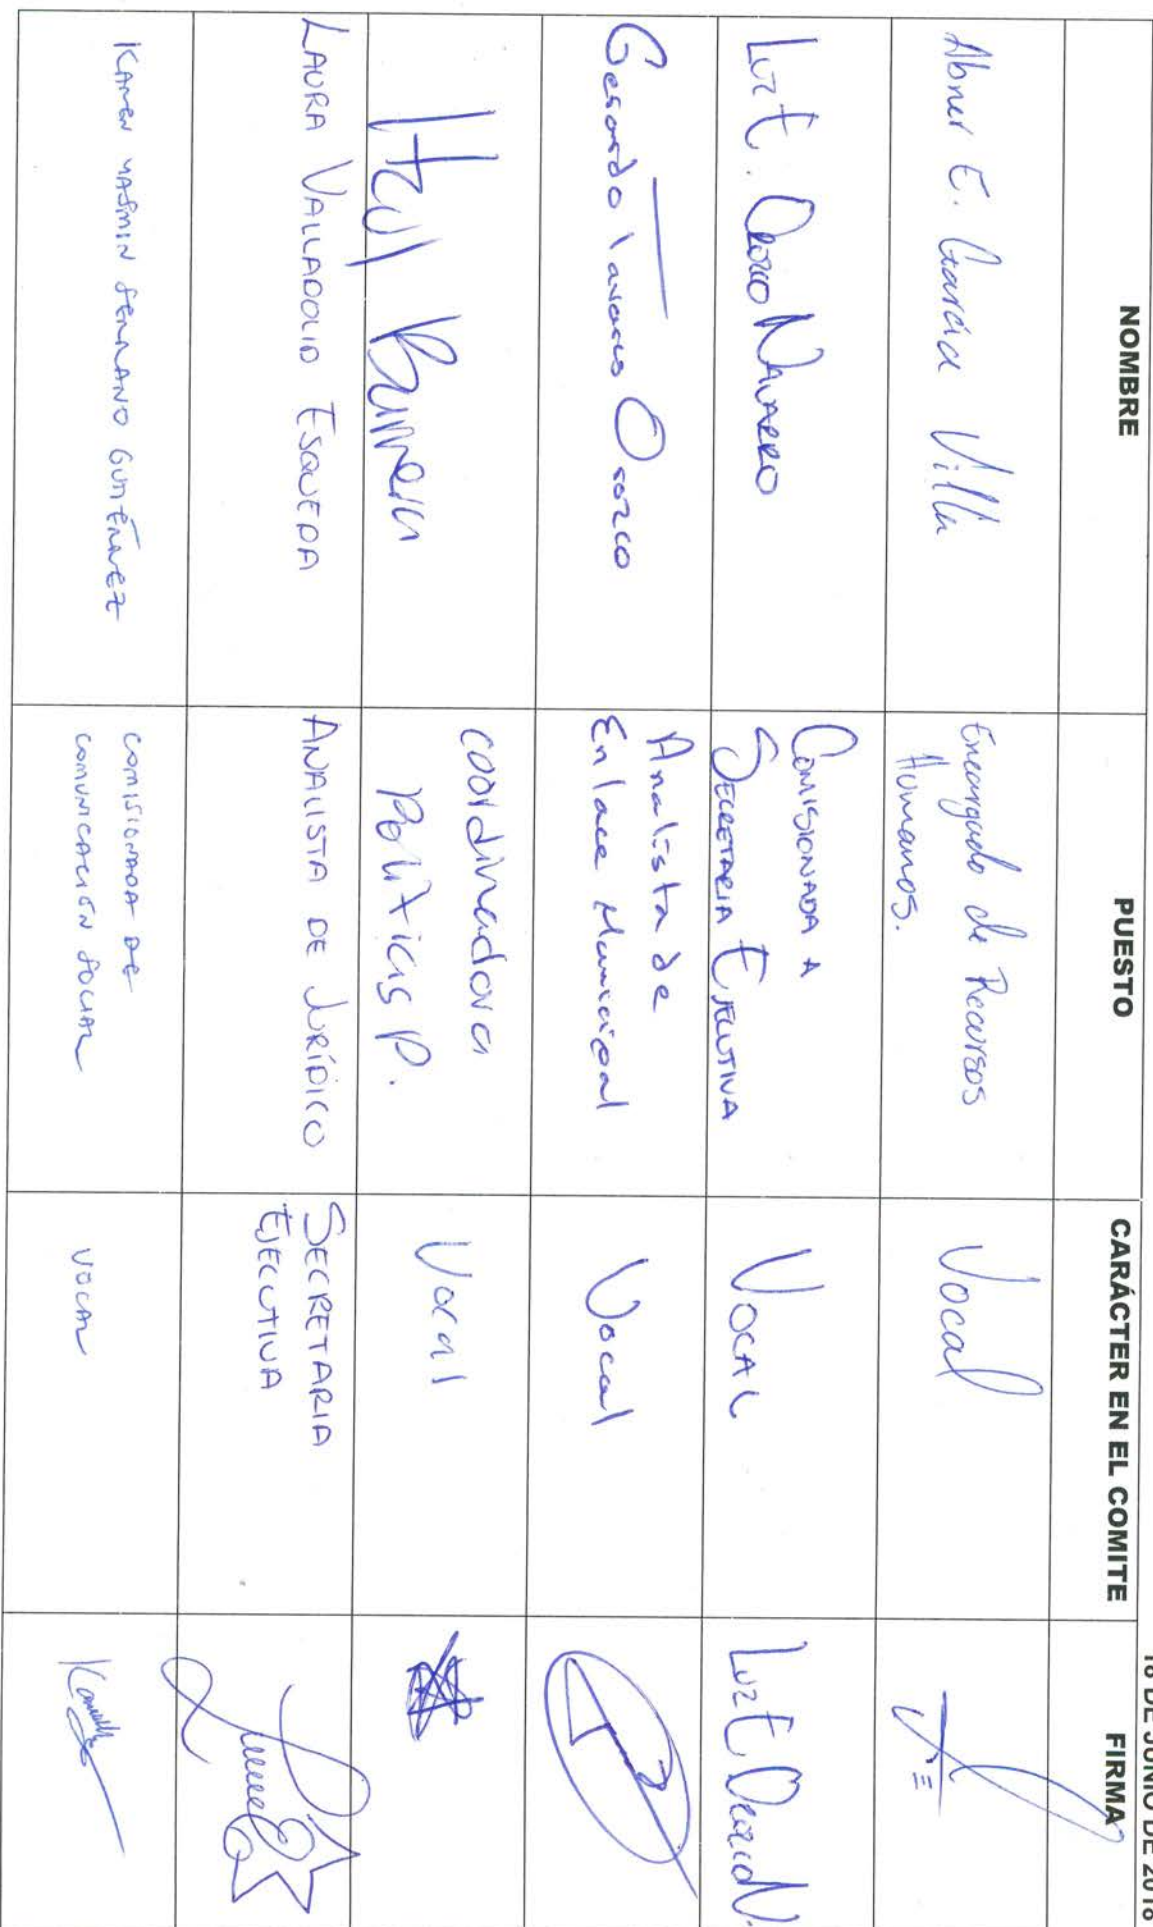 DE JUNIO DE 2018
NOMBRE PUESTO CARÁCTER EN EL COMITE FIRMA
Abner E. García Villa
Encargado de Recursos
Humanos.
Vocal
Luz E. Orozco Navarro
Comisionada a
Secretaria Ejecutiva
Vocal
Luz E Orozco N.
Gerardo Tavares Orozco
Analista de
Enlace Municipal
Vocal
Itzul
coordinadora
Politicas P.
Vocal
LAURA VALLADOLID ESQUEDA
ANALISTA DE JURÍDICO
SECRETARIA
EJECUTIVA
KAREN YASMIN SERRANO GUTIÉRREZ
COMISIONADA DE
COMUNICACIÓN SOCIAL
VOCAL